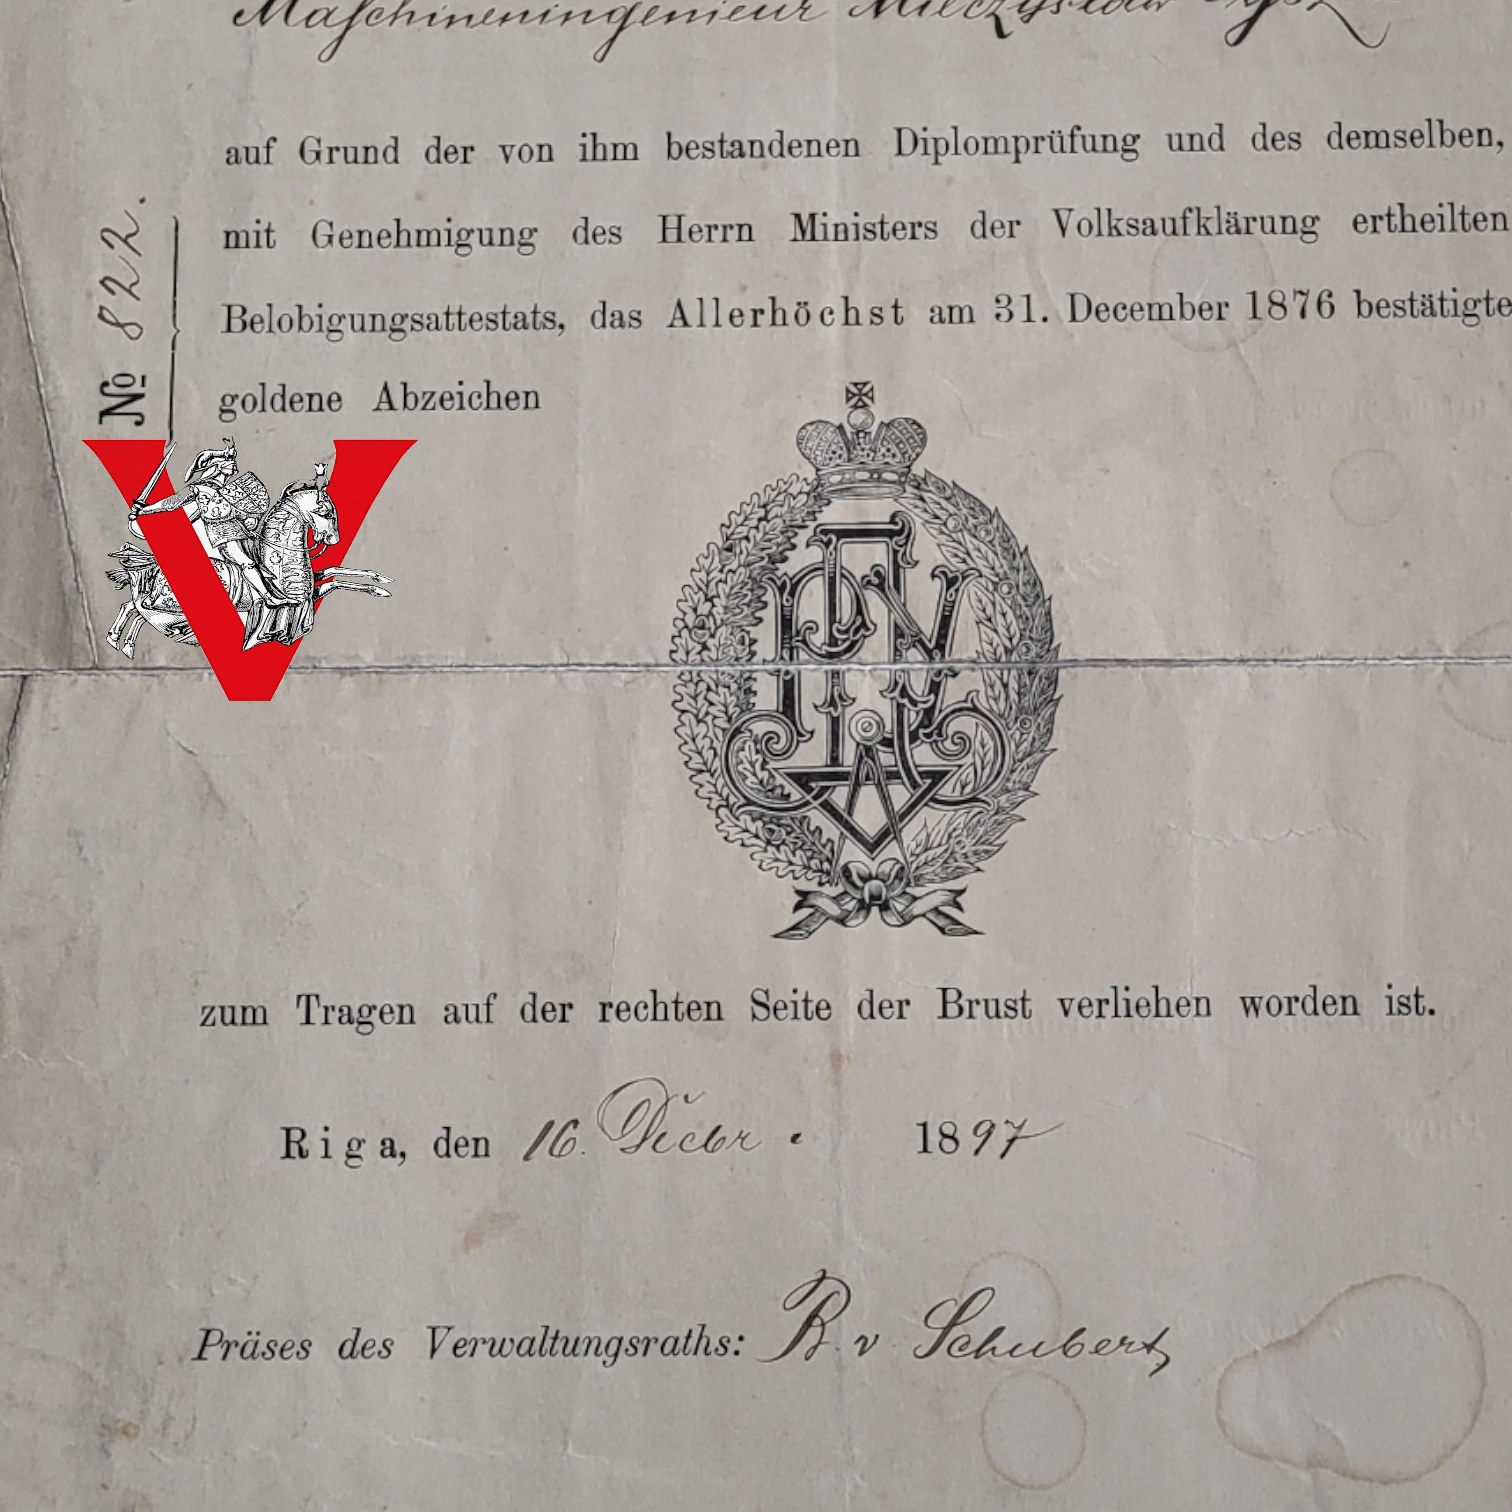 Maschineningenieur Mieczyslaw
auf Grund der von ihm bestandenen Diplomprüfung und des demselben,
mit Genehmigung des Herrn Ministers der Volksaufklärung ertheilten
Belobigungsattestats, das Allerhöchst am 31. December 1876 bestätigte
goldene Abzeichen
№ 822.
V
zum Tragen auf der rechten Seite der Brust verliehen worden ist.
Riga, den 16. Decbr. 1897
Präses des Verwaltungsraths: R. v Schubert